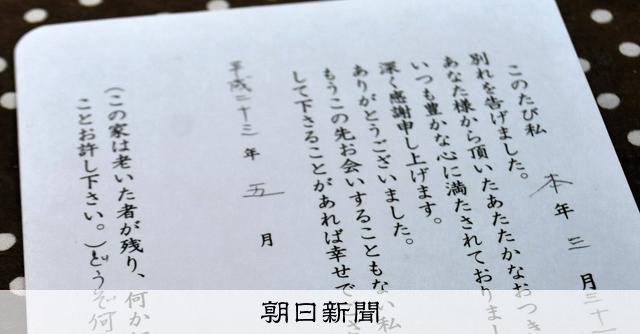 このたび私 本年三月三十一
別れを告げました。
あなた様から頂いたあたたかなおつき
いつも豊かな心に満たされておりまし
深く感謝申し上げます。
ありがとうございました。
もうこの先お会いすることもない私
して下さることがあれば幸せで
平成二十三年 五 月
(この家は老いた者が残り、何か
ことお許し下さい。)どうぞ何
朝日新聞